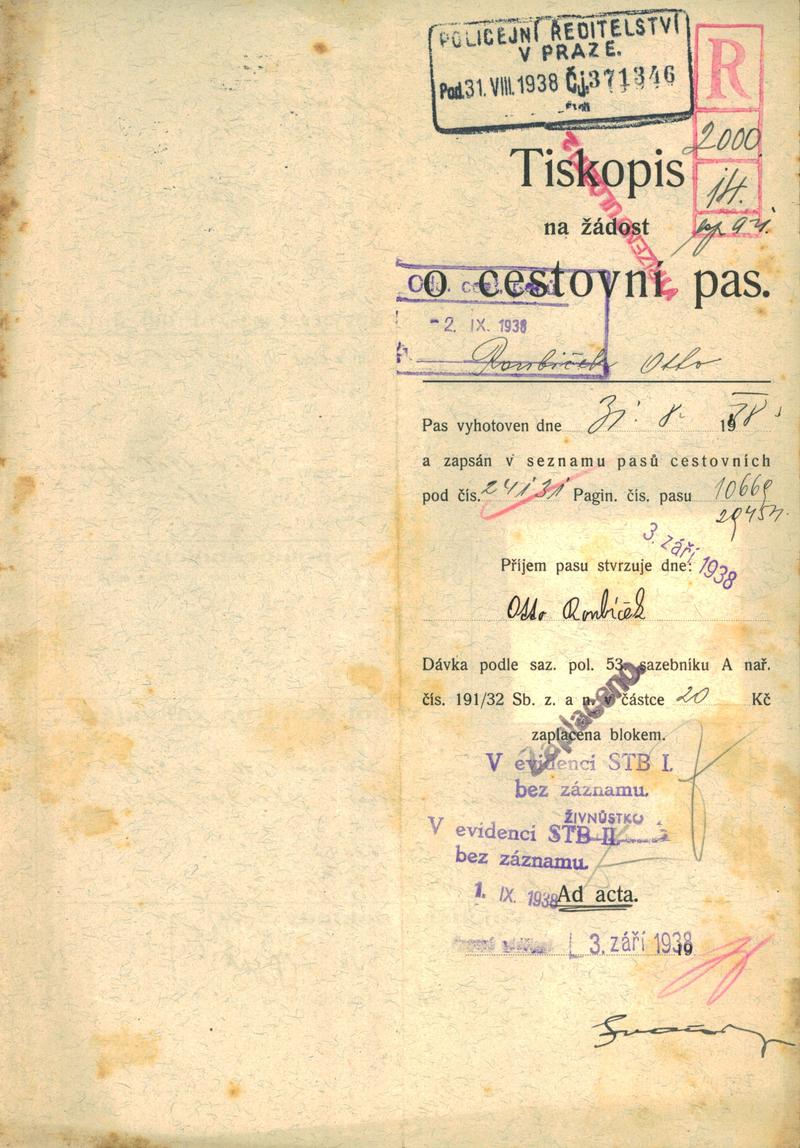 POLICEJNÍ ŘEDITELSTVÍ
V PRAZE.
Pod. 31. VIII. 1938 Čj. 371346
R
2000
14.
Tiskopis
na žádost
o cestovní pas.
- 2. IX. 1938
Roubíček Otto
Pas vyhotoven dne 31. 8. 1938
a zapsán v seznamu pasů cestovních
pod čís. 24131 Pagin. čís. pasu 10669
3. září 1938
Příjem pasu stvrzuje dne:
Otto Roubíček
Dávka podle saz. pol. 53. sazebníku A nař.
čís. 191/32 Sb. z. a n. v částce 20 Kč
Zaplaceno.
zaplacena blokem.
V evidenci STB I.
bez záznamu.
ŽIVNŮSTKO
V evidenci STB II.
bez záznamu.
1. IX. 1938
Ad acta.
3. září 1938
19